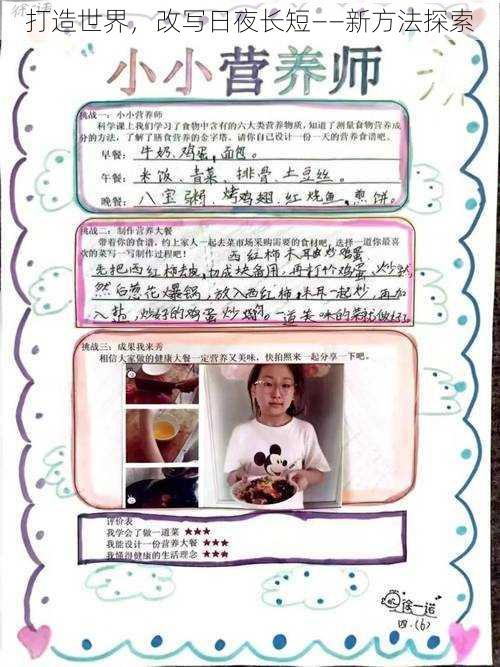 打造世界，改写日夜长短——新方法探索
小小营养师
挑战一：小小营养师
科学课上我们学习了食物中含有的六大类营养物质，知道了测量食物营养成
分的方法，了解了膳食营养的金字塔。请你自己设计一份一天的营养食谱吧。
早餐：牛奶、鸡蛋，面包。
午餐：米饭、青菜、排骨、土豆丝。
晚餐：八宝粥，烤鸡翅、红烧鱼，煎饼。
挑战二：制作营养大餐
带着你的食谱，约上家人一起去菜市场采购需要的食材吧，选择一道你最喜
欢的菜写一写制作过程吧！西红柿木耳炒鸡蛋
先把西红柿去皮，切成块备用，再打个鸡蛋，炒熟
然后葱花爆锅，放入西红柿，木耳一起炒，再加
入盐，炒好的鸡蛋炒，一道美味的菜就做好了
挑战三：成果我来秀
相信大家做的健康大餐一定营养又美味，快拍照来一起分享一下吧。
评价表
我学会了做一道菜 ★★★
我能设计一份营养大餐 ★★★
我懂得健康的生活理念 ★★★
徐一诺
四.(6)